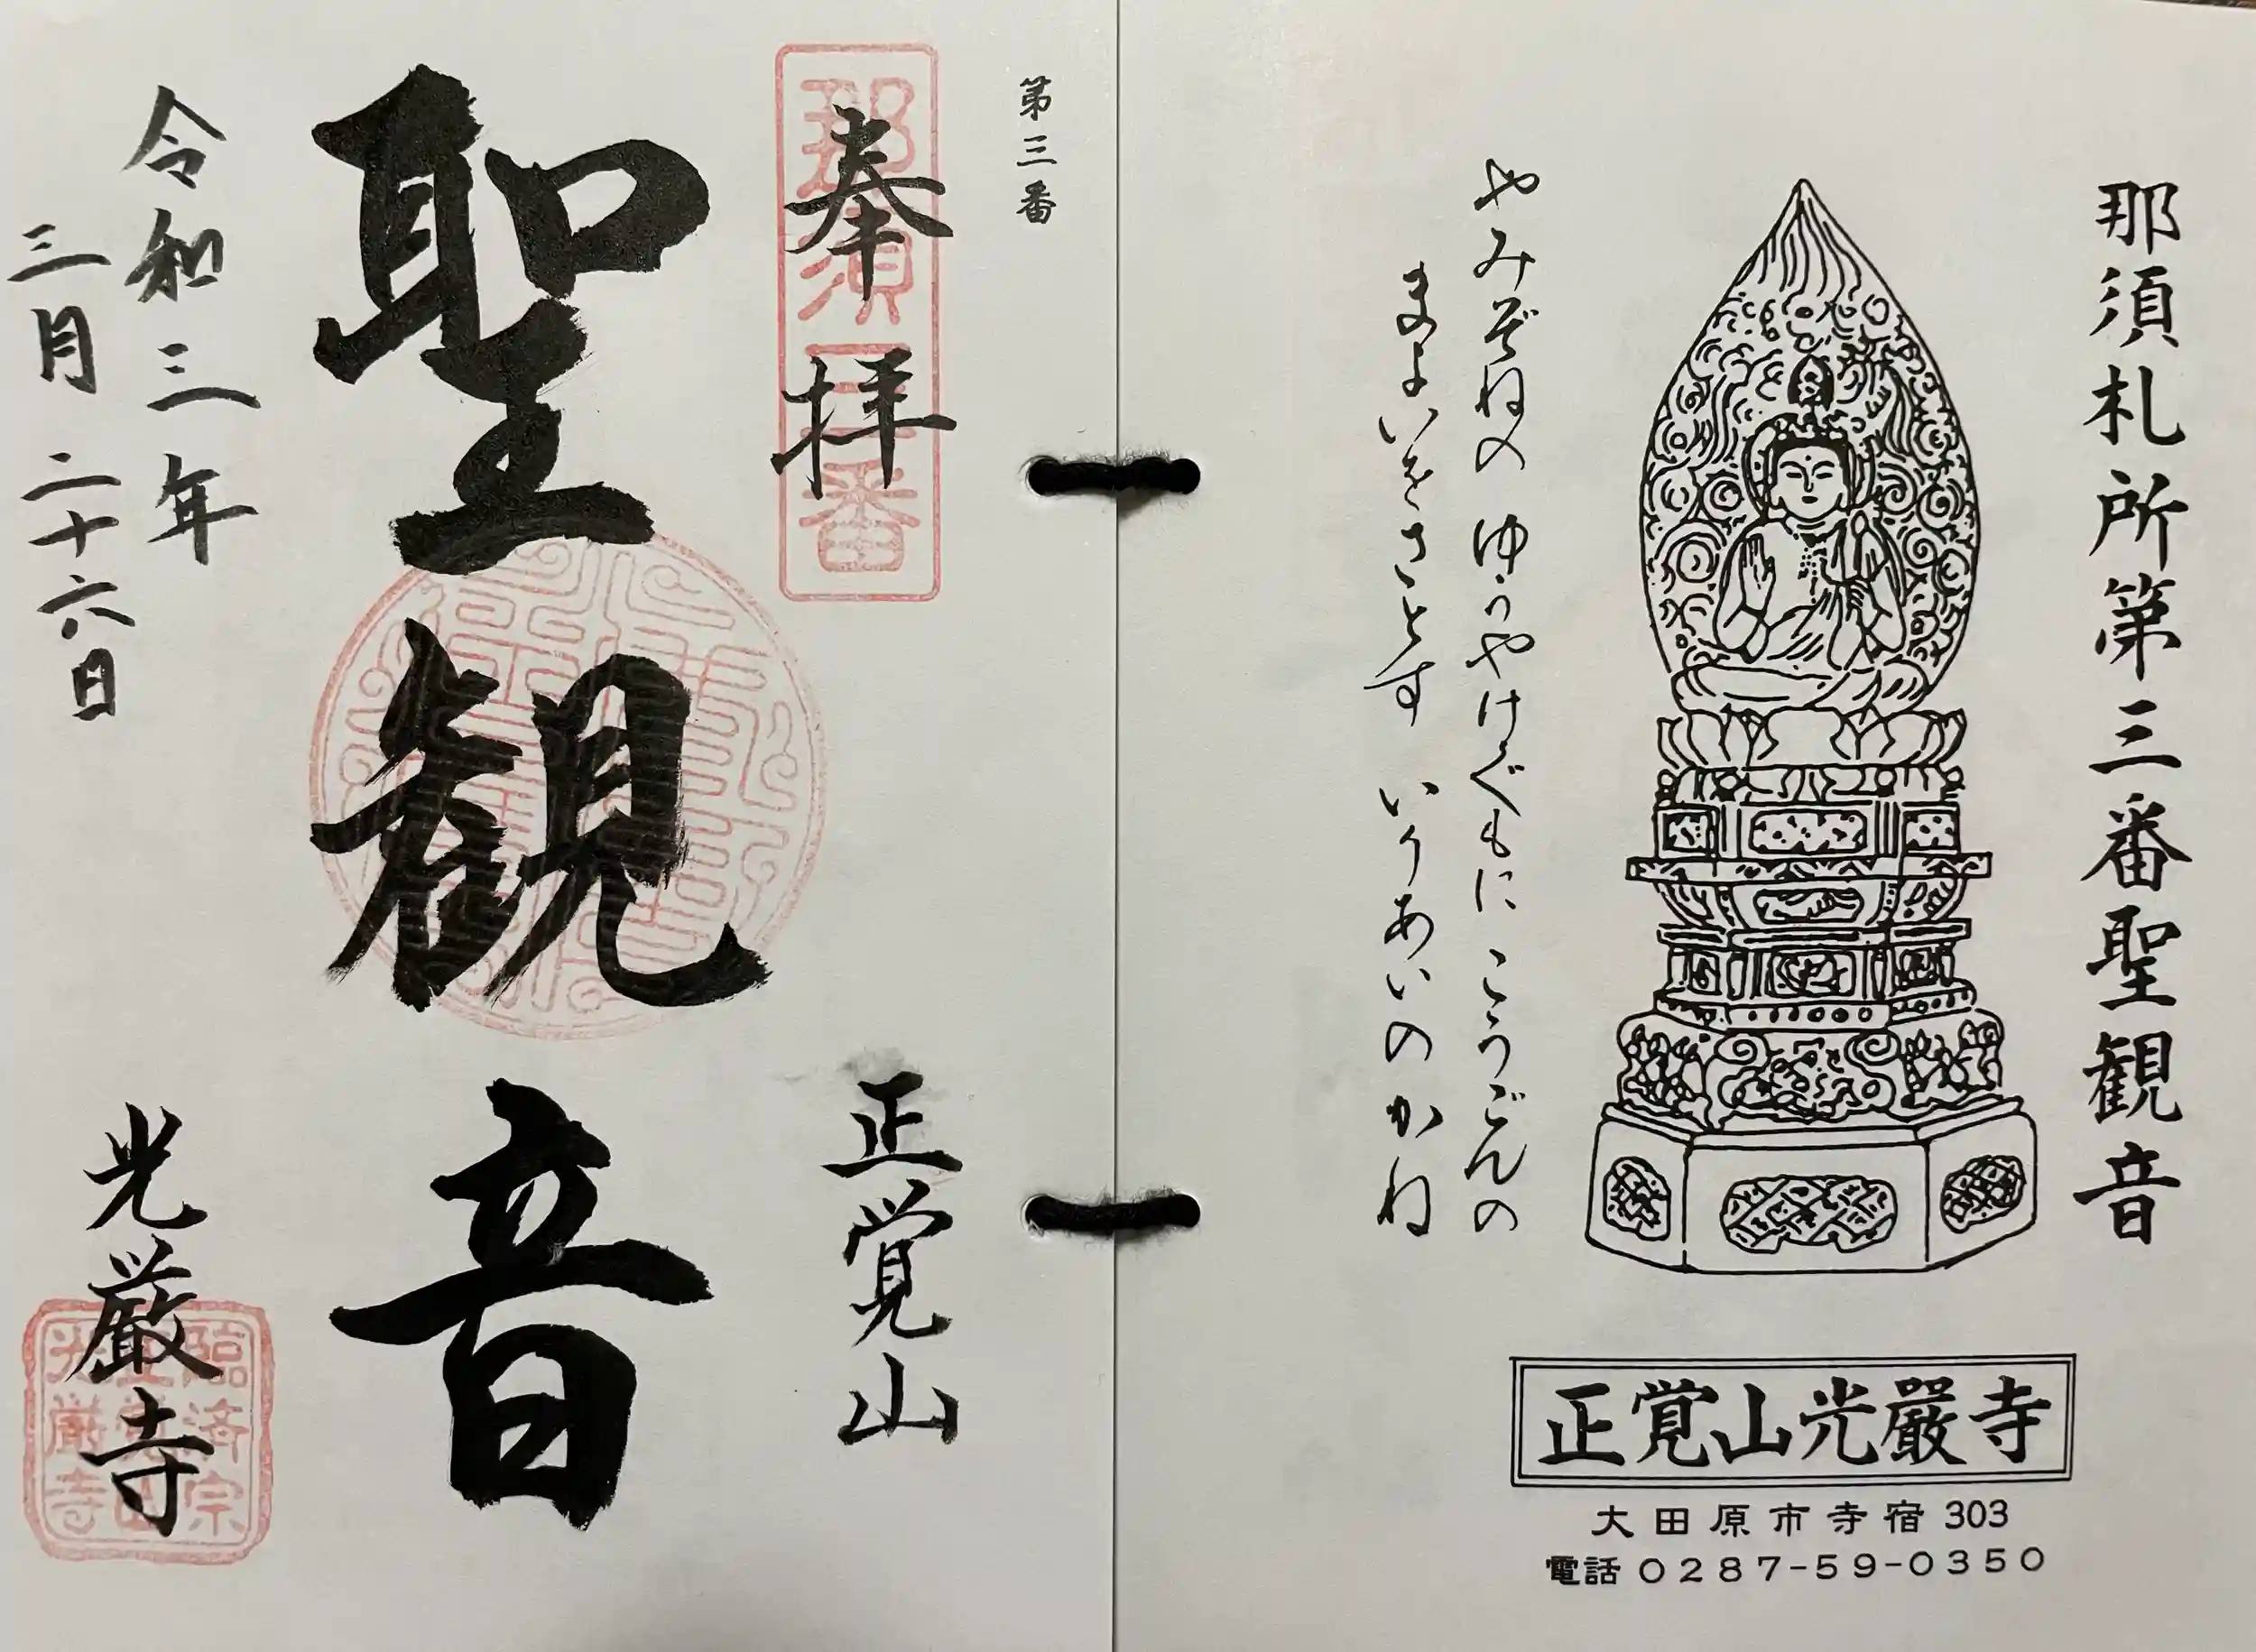 那須札所第三番聖観音
やみぞねの ゆうやけぐもに こうごんの
まよいをさとす いりあいのかね
正覚山光嚴寺
大田原市寺宿303
電話0287-59-0350
第三番
奉拝
那須三番
正覚山
聖観音
令和三年
三月二十六日
光厳寺
臨済宗
正覚山
光厳寺